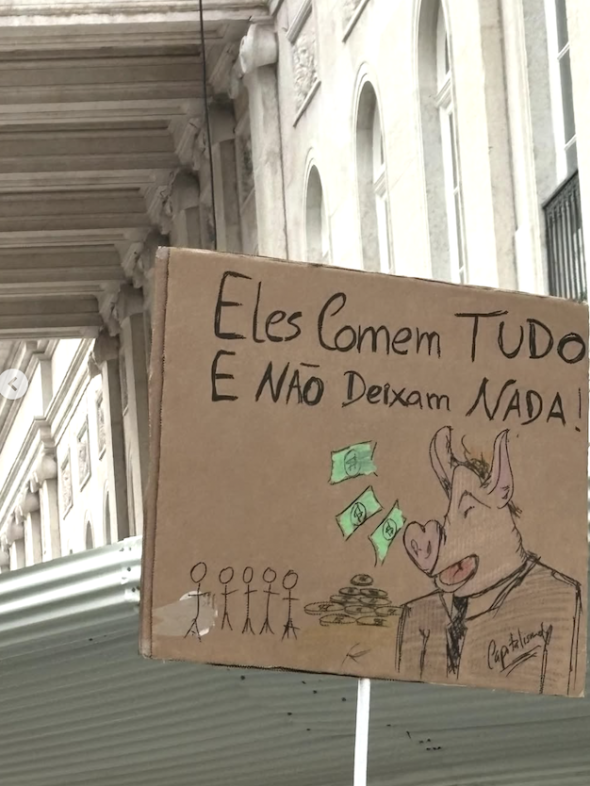 Eles Comem TUDO
E NÃO Deixam NADA!